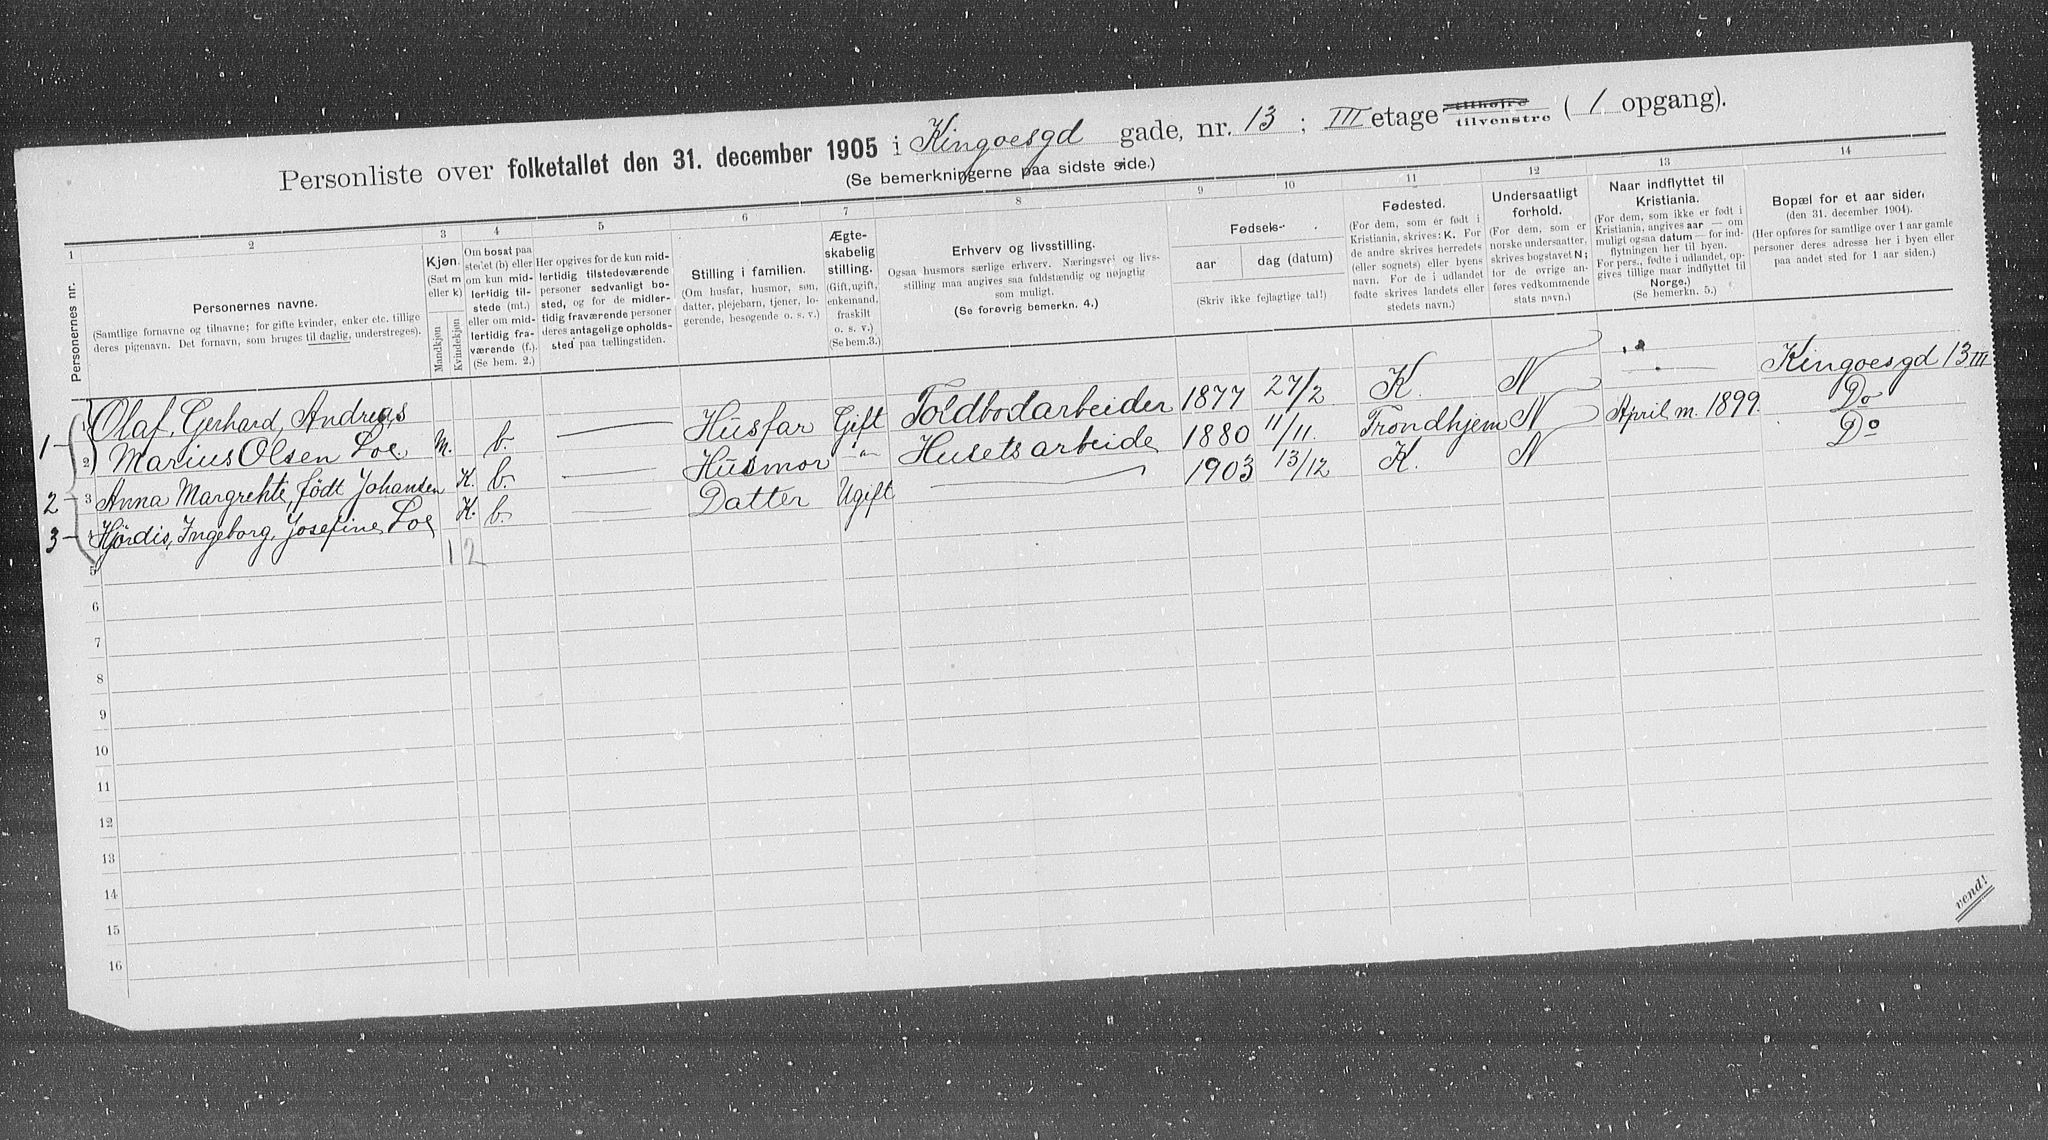 Personliste over folketallet den 31. december 1905 i Kingoesgd gade, nr. 13 ; III etage tilhøjre tilvenstre ( 1 opgang).
(Se bemerkningerne paa sidste side.)
1 2 3 4 5 6 7 8 9 10 11 12 13 14
Personernes nr.
Personernes navne.
(Samtlige fornavne og tilnavne; for gifte kvinder, enker etc. tillige
deres pigenavn. Det fornavn, som bruges til daglig, understreges).
Kjøn.
(Sæt m
eller k)
Mandkjøn
Kvindekjøn
Om bosat paa
stedet (b) eller
om kun mid-
lertidig til-
stede (mt.)
eller om mid-
lertidig fra-
værende (f.).
(Se bem. 2.)
Her opgives for de kun mid-
lertidig tilstedeværende
personer sedvanlig bo-
sted, og for de midler-
tidig fraværende personer
deres antagelige opholds-
sted paa tællingstiden.
Stilling i familien.
(Om husfar, husmor, søn,
datter, plejebarn, tjener, lo-
gerende, besøgende o. s. v.)
Ægte-
skabelig
stilling.
(Gift, ugift,
enkemand,
fraskilt
o. s. v.)
(Se bem. 3.)
Erhverv og livsstilling.
Ogsaa husmors særlige erhverv. Næringsvei og livs-
stilling maa angives saa fuldstændig og nøjagtig
som muligt.
(Se forøvrig bemerkn. 4.)
Fødsels-
aar
dag (datum)
(Skriv ikke fejlagtige tal!)
Fødested.
(For dem, som er født i
Kristiania, skrives: K. For
de andre skrives herredets
(eller sognets) eller byens
navn. For de i udlandet
fødte skrives landets eller
stedets navn.)
Undersaatligt
forhold.
(For dem, som er
norske undersaatter,
skrives bogstavet N;
for de øvrige an-
føres vedkommende
stats navn.)
Naar indflyttet til
Kristiania.
(For dem, som ikke er født i
Kristiania, angives aar — om
muligt ogsaa datum — for ind-
flytningen her til byen.
For pers., fødte i udlandet, op-
gives tillige naar indflyttet til
Norge.)
(Se bemerkn. 5.)
Bopæl for et aar siden
(den 31. december 1904).
(Her opføres for samtlige over 1 aar gamle
personer deres adresse her i byen eller
paa andet sted for 1 aar siden.)
1 Olaf, Gerhard, Andreas
1 2 Marius Olsen Loe M. b. Husfar Gift Toldbodarbeider 1877 27/2 K. N Kingoesgd 13 III
2 3 Anna Margrehte, født Johansen K. b. Husmor Husets arbeide 1880 11/11. Trondhjem N April m. 1899. Do
3 Hjørdis, Ingeborg, Josefine Loe K. b. Datter Ugift 1903 13/12 K. N Do
5 1 2
6
7
8
9
10
11
12
13
14
15
16
vend!